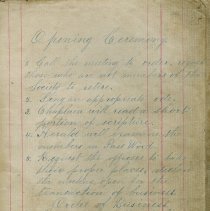 Opening Ceremony
1. Call the meeting to order, request
those who are not members of the
Society to retire.
2. Sing an appropriate ode.
3. Chaplain will read a short
portion of scripture.
4. Herald will examine the
members in Pass Word.
5. Request the officers to
their proper places, declare
the open for the
transaction of business.
Order of Business